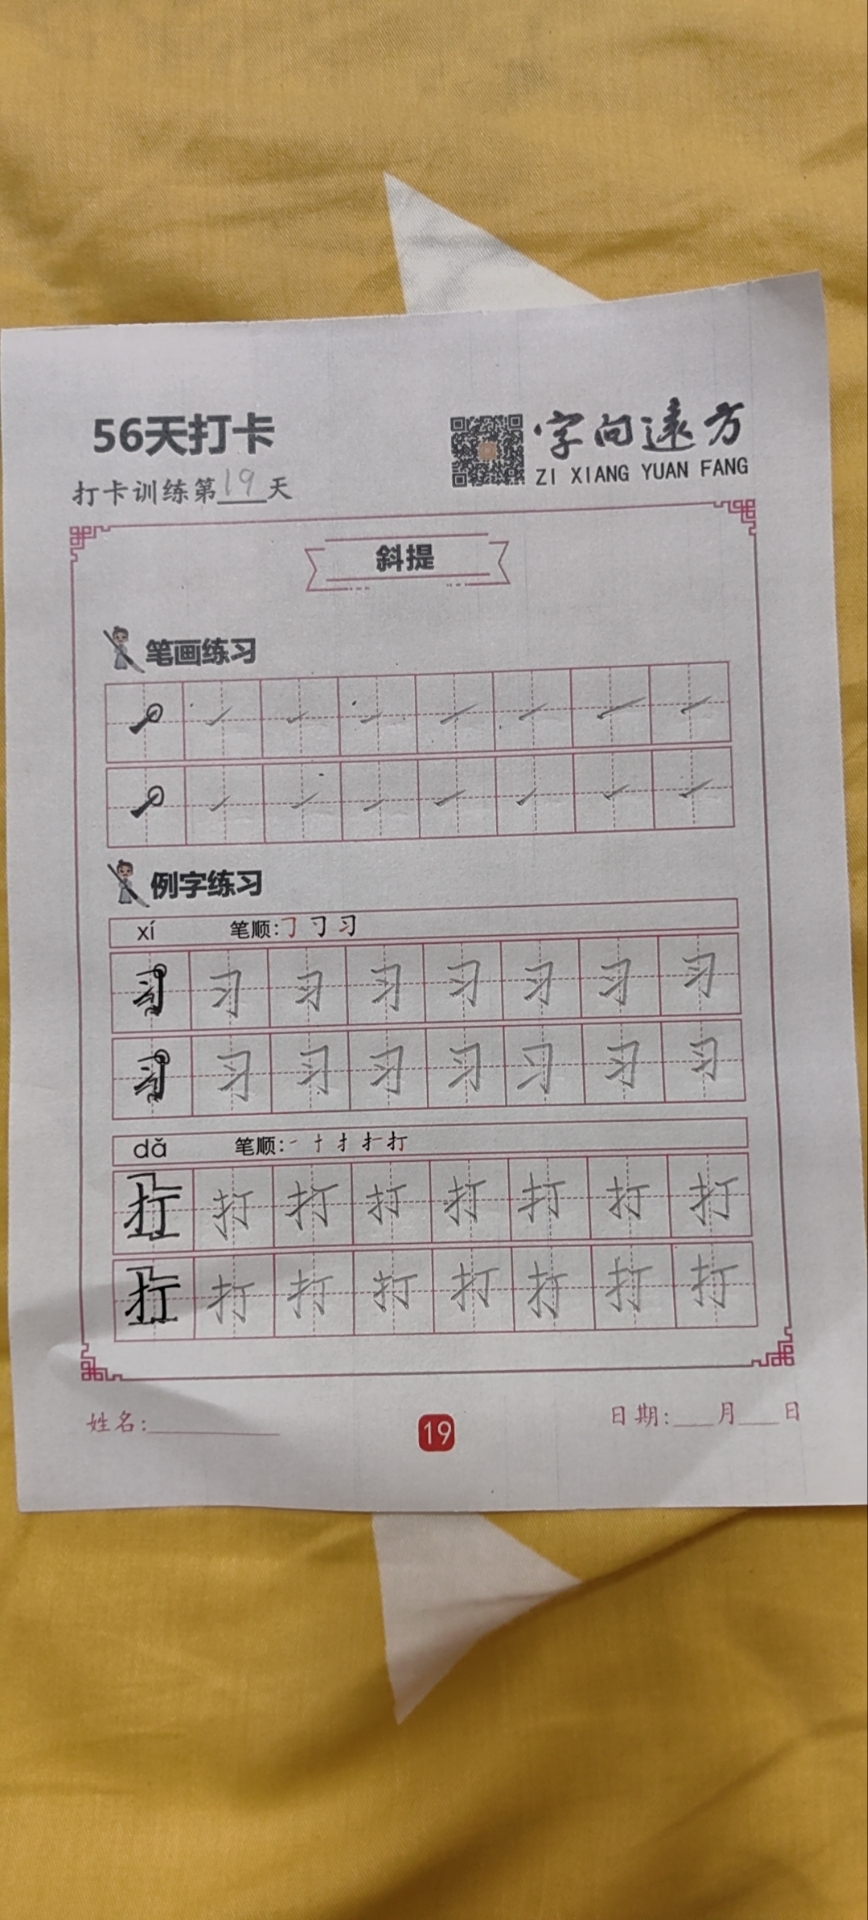 56天打卡
字向远方
ZI XIANG YUAN FANG
打卡训练第19天
斜提
笔画练习
例字练习
xí 笔顺:㇆ 刁 习
习 习 习 习 习 习 习 习
习 习 习 习 习 习 习 习
dǎ 笔顺:一 十 扌 扩 打
打 打 打 打 打 打 打 打
打 打 打 打 打 打 打 打
姓名:
19
日期: 月 日